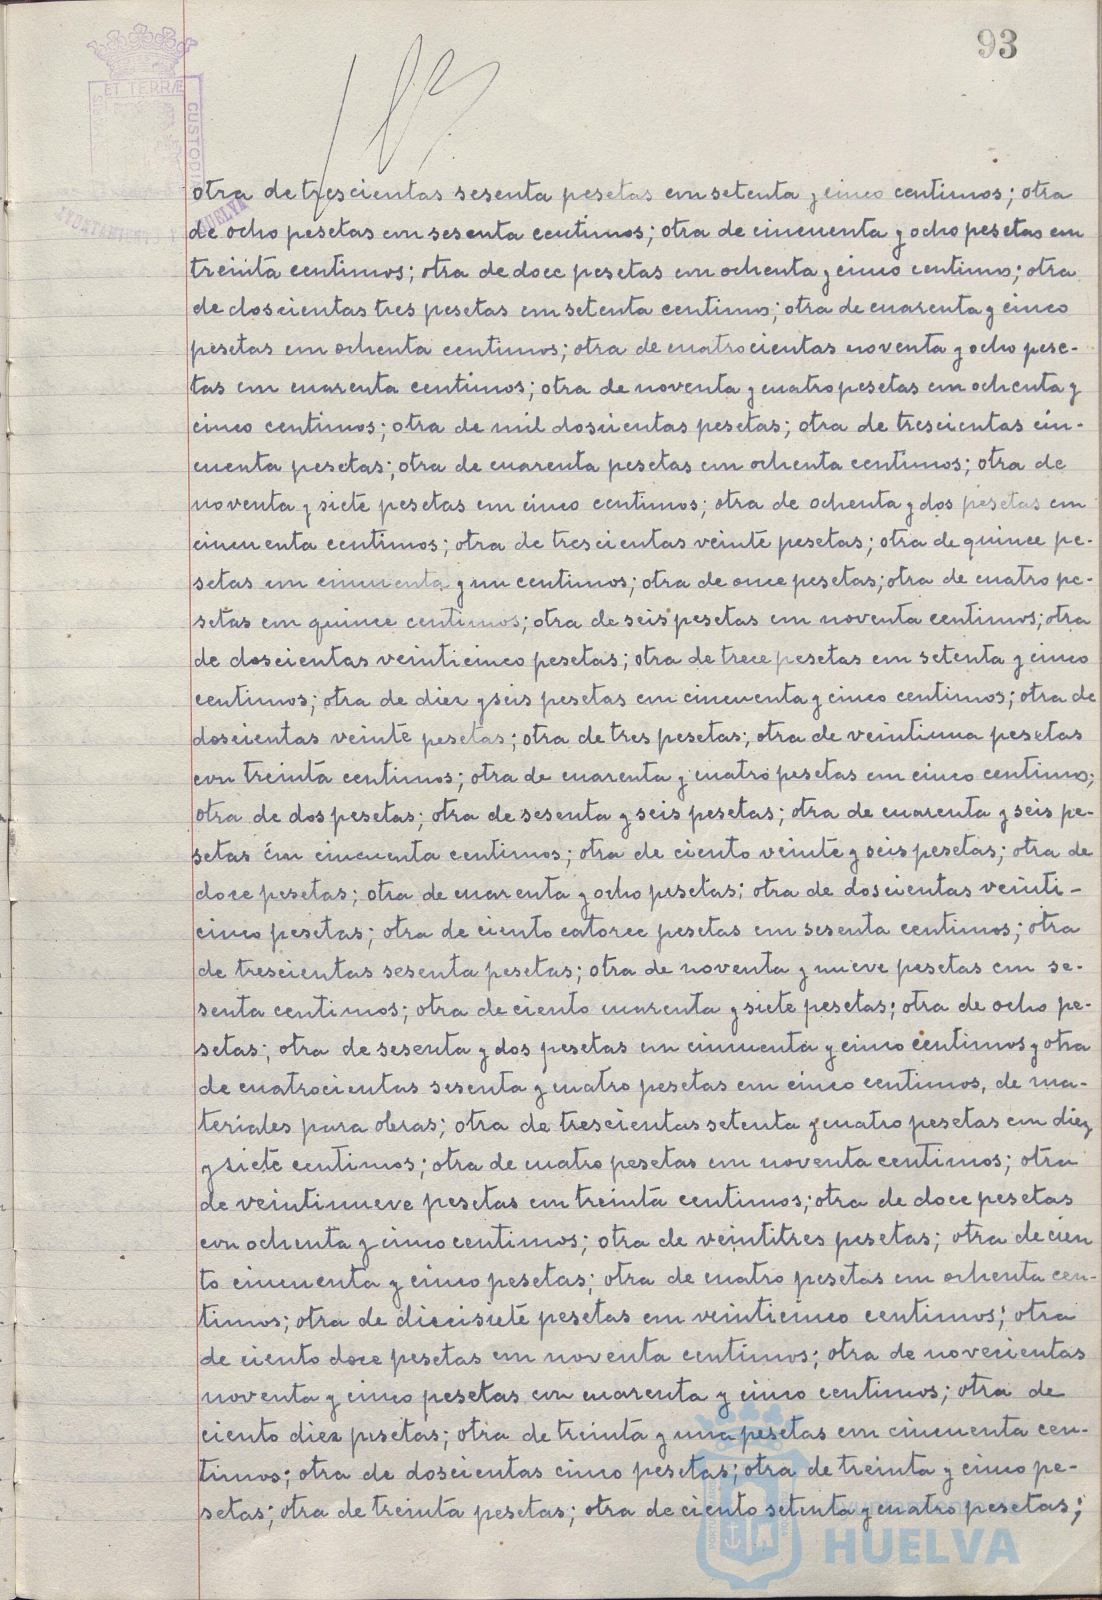 93
ET TERRÆ
CUSTODI
AYUNTAMIENTO HUELVA
otra de trescientas sesenta pesetas con setenta y cinco centimos; otra
de ocho pesetas con sesenta centimos; otra de cincuenta y ocho pesetas con
treinta centimos; otra de doce pesetas con ochenta y cinco centimos; otra
de doscientas tres pesetas con setenta centimos; otra de cuarenta y cinco
pesetas con ochenta centimos; otra de cuatrocientas noventa y ocho pese-
tas con cuarenta centimos; otra de noventa y cuatro pesetas con ochenta y
cinco centimos; otra de mil doscientas pesetas; otra de trescientas cin-
cuenta pesetas; otra de cuarenta pesetas con ochenta centimos; otra de
noventa y siete pesetas con cinco centimos; otra de ochenta y dos pesetas con
cincuenta centimos; otra de trescientas veinte pesetas; otra de quince pe-
setas con cincuenta y un centimos; otra de once pesetas; otra de cuatro pe-
setas con quince centimos; otra de seis pesetas con noventa centimos; otra
de doscientas veinticinco pesetas; otra de trece pesetas con setenta y cinco
centimos; otra de diez y seis pesetas con cincuenta y cinco centimos; otra de
doscientas veinte pesetas; otra de tres pesetas; otra de veintiuna pesetas
con treinta centimos; otra de cuarenta y cuatro pesetas con cinco centimos;
otra de dos pesetas; otra de sesenta y seis pesetas; otra de cuarenta y seis pe-
setas con cincuenta centimos; otra de ciento veinte y seis pesetas; otra de
doce pesetas; otra de cuarenta y ocho pesetas; otra de doscientas veinti-
cinco pesetas; otra de ciento catorce pesetas con sesenta centimos; otra
de trescientas sesenta pesetas; otra de noventa y nueve pesetas con se-
senta centimos; otra de ciento cuarenta y siete pesetas; otra de ocho pe-
setas; otra de sesenta y dos pesetas con cincuenta y cinco centimos y otra
de cuatrocientas sesenta y cuatro pesetas con cinco centimos, de ma-
teriales para obras; otra de trescientas setenta y cuatro pesetas con diez
y siete centimos; otra de cuatro pesetas con noventa centimos; otra
de veintinueve pesetas con treinta centimos; otra de doce pesetas
con ochenta y cinco centimos; otra de veintitres pesetas; otra de cien
to cincuenta y cinco pesetas; otra de cuatro pesetas con ochenta cen-
timos; otra de diecisiete pesetas con veinticinco centimos; otra
de ciento doce pesetas con noventa centimos; otra de novecientas
noventa y cinco pesetas con cuarenta y cinco centimos; otra de
ciento diez pesetas; otra de treinta y una pesetas con cincuenta cen-
timos; otra de doscientas cinco pesetas; otra de treinta y cinco pe-
setas; otra de treinta pesetas; otra de ciento setenta y cuatro pesetas;
HUELVA